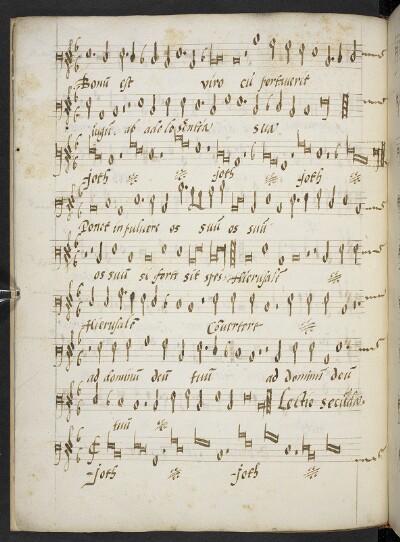 Bonũ est viro cũ portaverit
iugũ ab adolescentia sua
Joth Joth Joth
Ponet in pulvere os suũ os suũ
os suũ si forte sit spes Hierusalẽ
Hierusalẽ Convertere
ad dominũ deũ tuũ ad Dominũ deũ
tuũ Lectio secũda.
Joth Joth